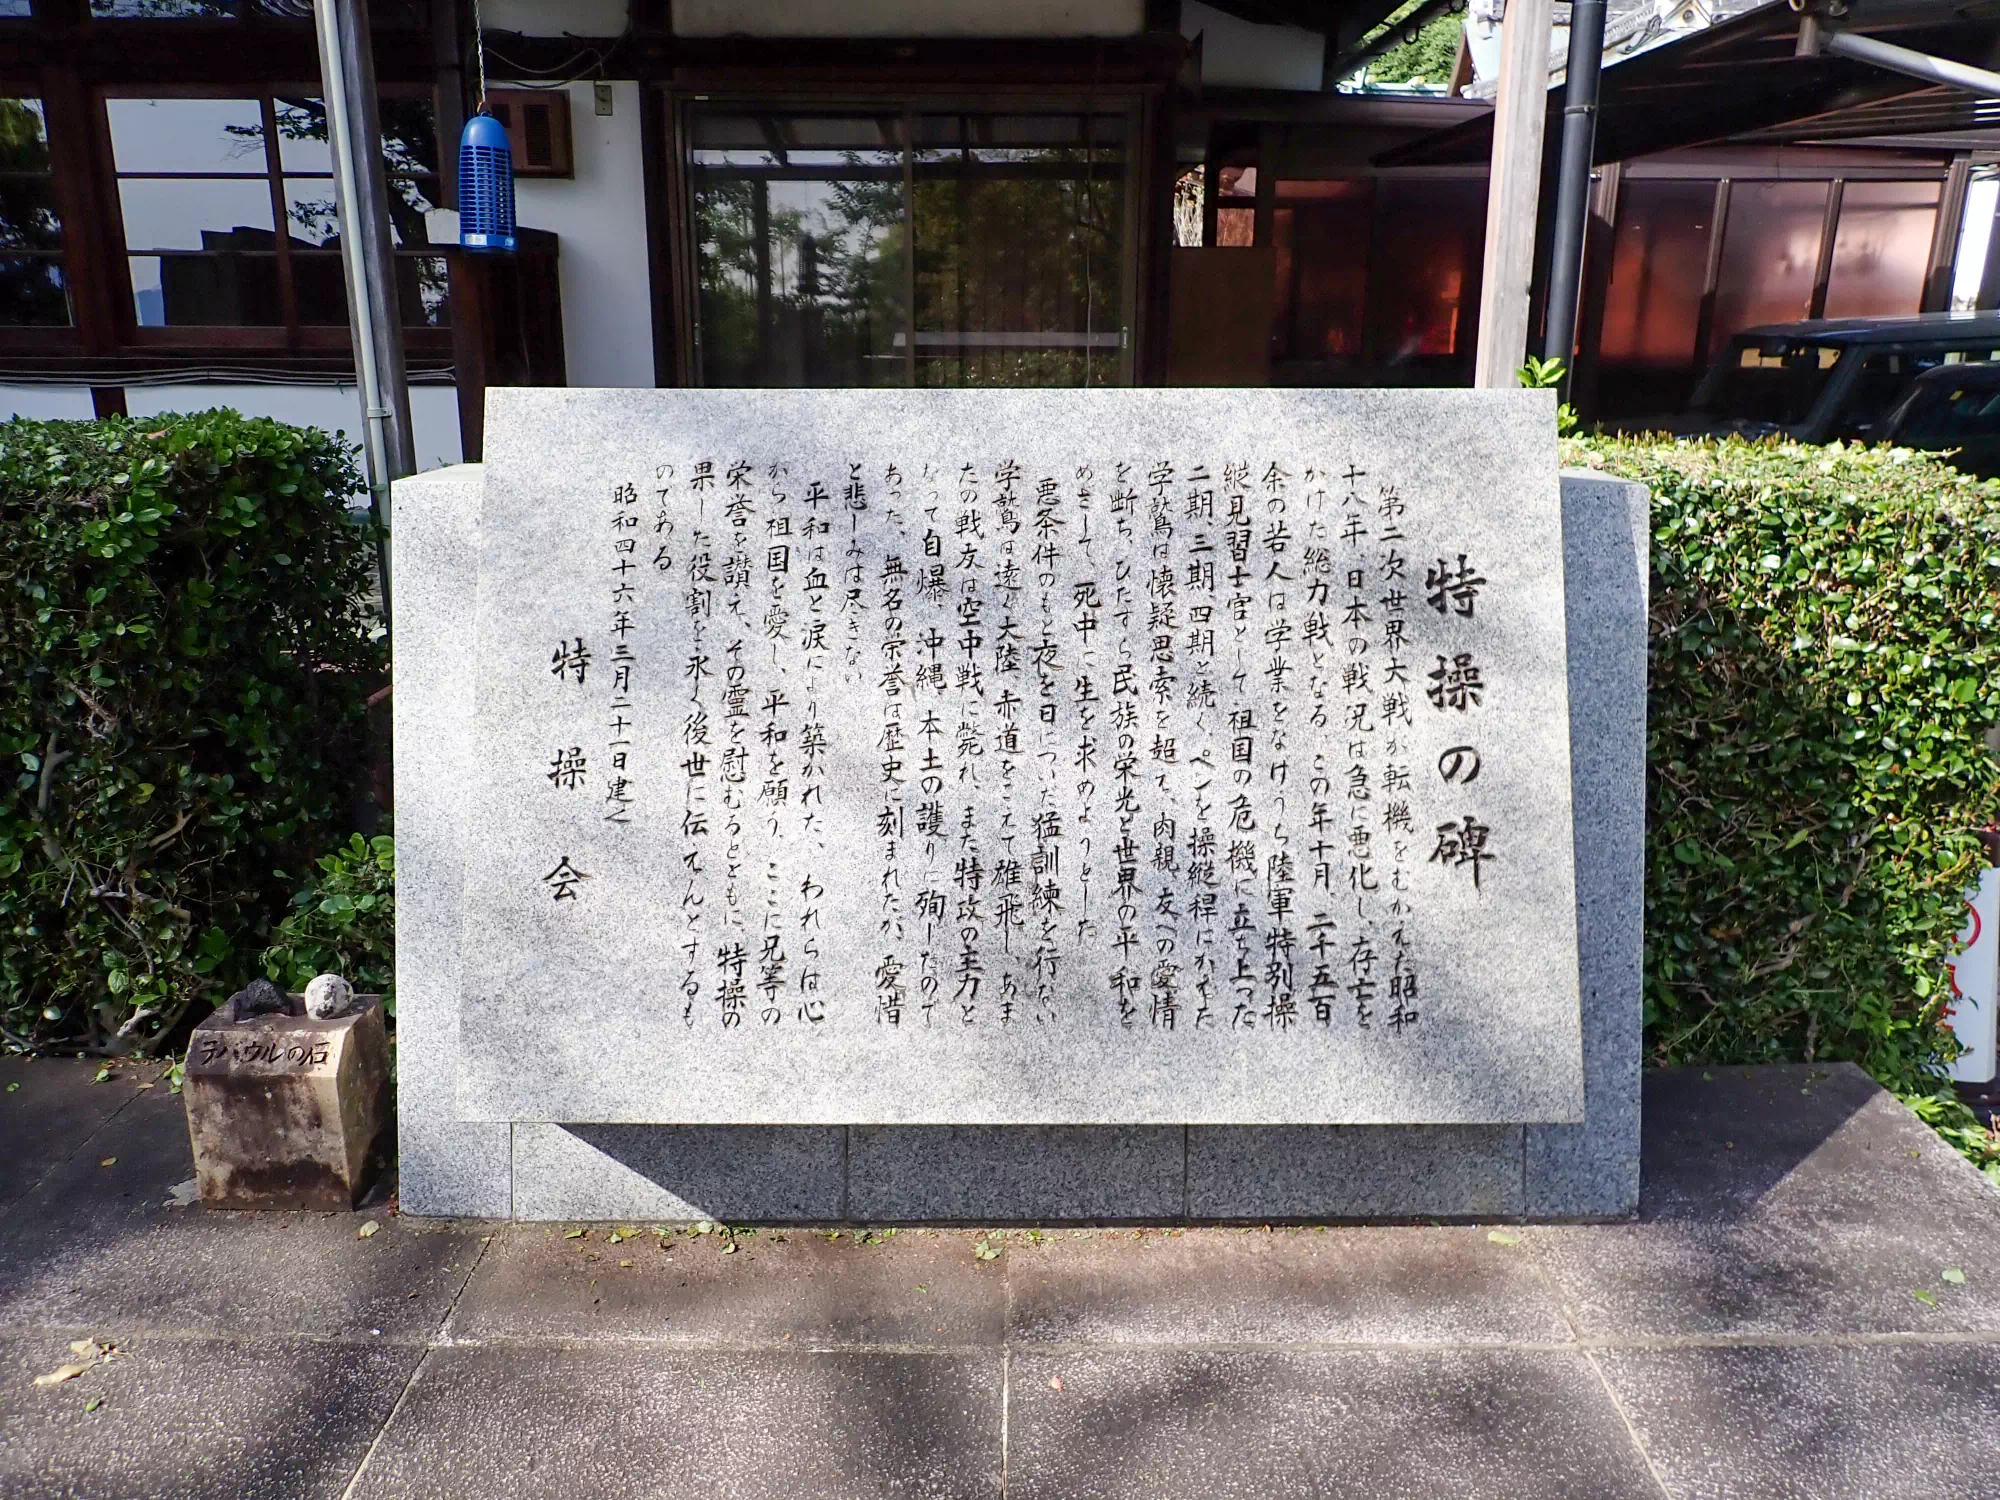 特操の碑
第二次世界大戦が転機をむかえた昭和
十八年、日本の戦況は急に悪化し、存亡を
かけた総力戦となる この年十月、二千五百
余の若人は学業をなげうち陸軍特別操
縦見習士官として祖国の危機に立ち上った
二期、三期、四期と続く、ペンを操縦桿にかえた
学鷲は懐疑思索を超え、肉親、友への愛情
を断ち、ひたすら民族の栄光と世界の平和を
めざして、死中に生を求めようとした
悪条件のもと夜を日についだ猛訓練を行ない
学鷲は遠く大陸、赤道をこえて雄飛し、あま
たの戦友は空中戦に斃れ、また特攻の主力と
なって自爆、沖縄、本土の護りに殉したので
あった、無名の栄誉は歴史に刻まれたが、愛惜
と悲しみは尽きない
平和は血と涙により築かれた、われらは心
から祖国を愛し、平和を願う、ここに兄等の
栄誉を讃え、その霊を慰むるとともに、特操の
果した役割を永く後世に伝えんとするも
のである
昭和四十六年三月二十一日建之
特操会
ラバウルの石